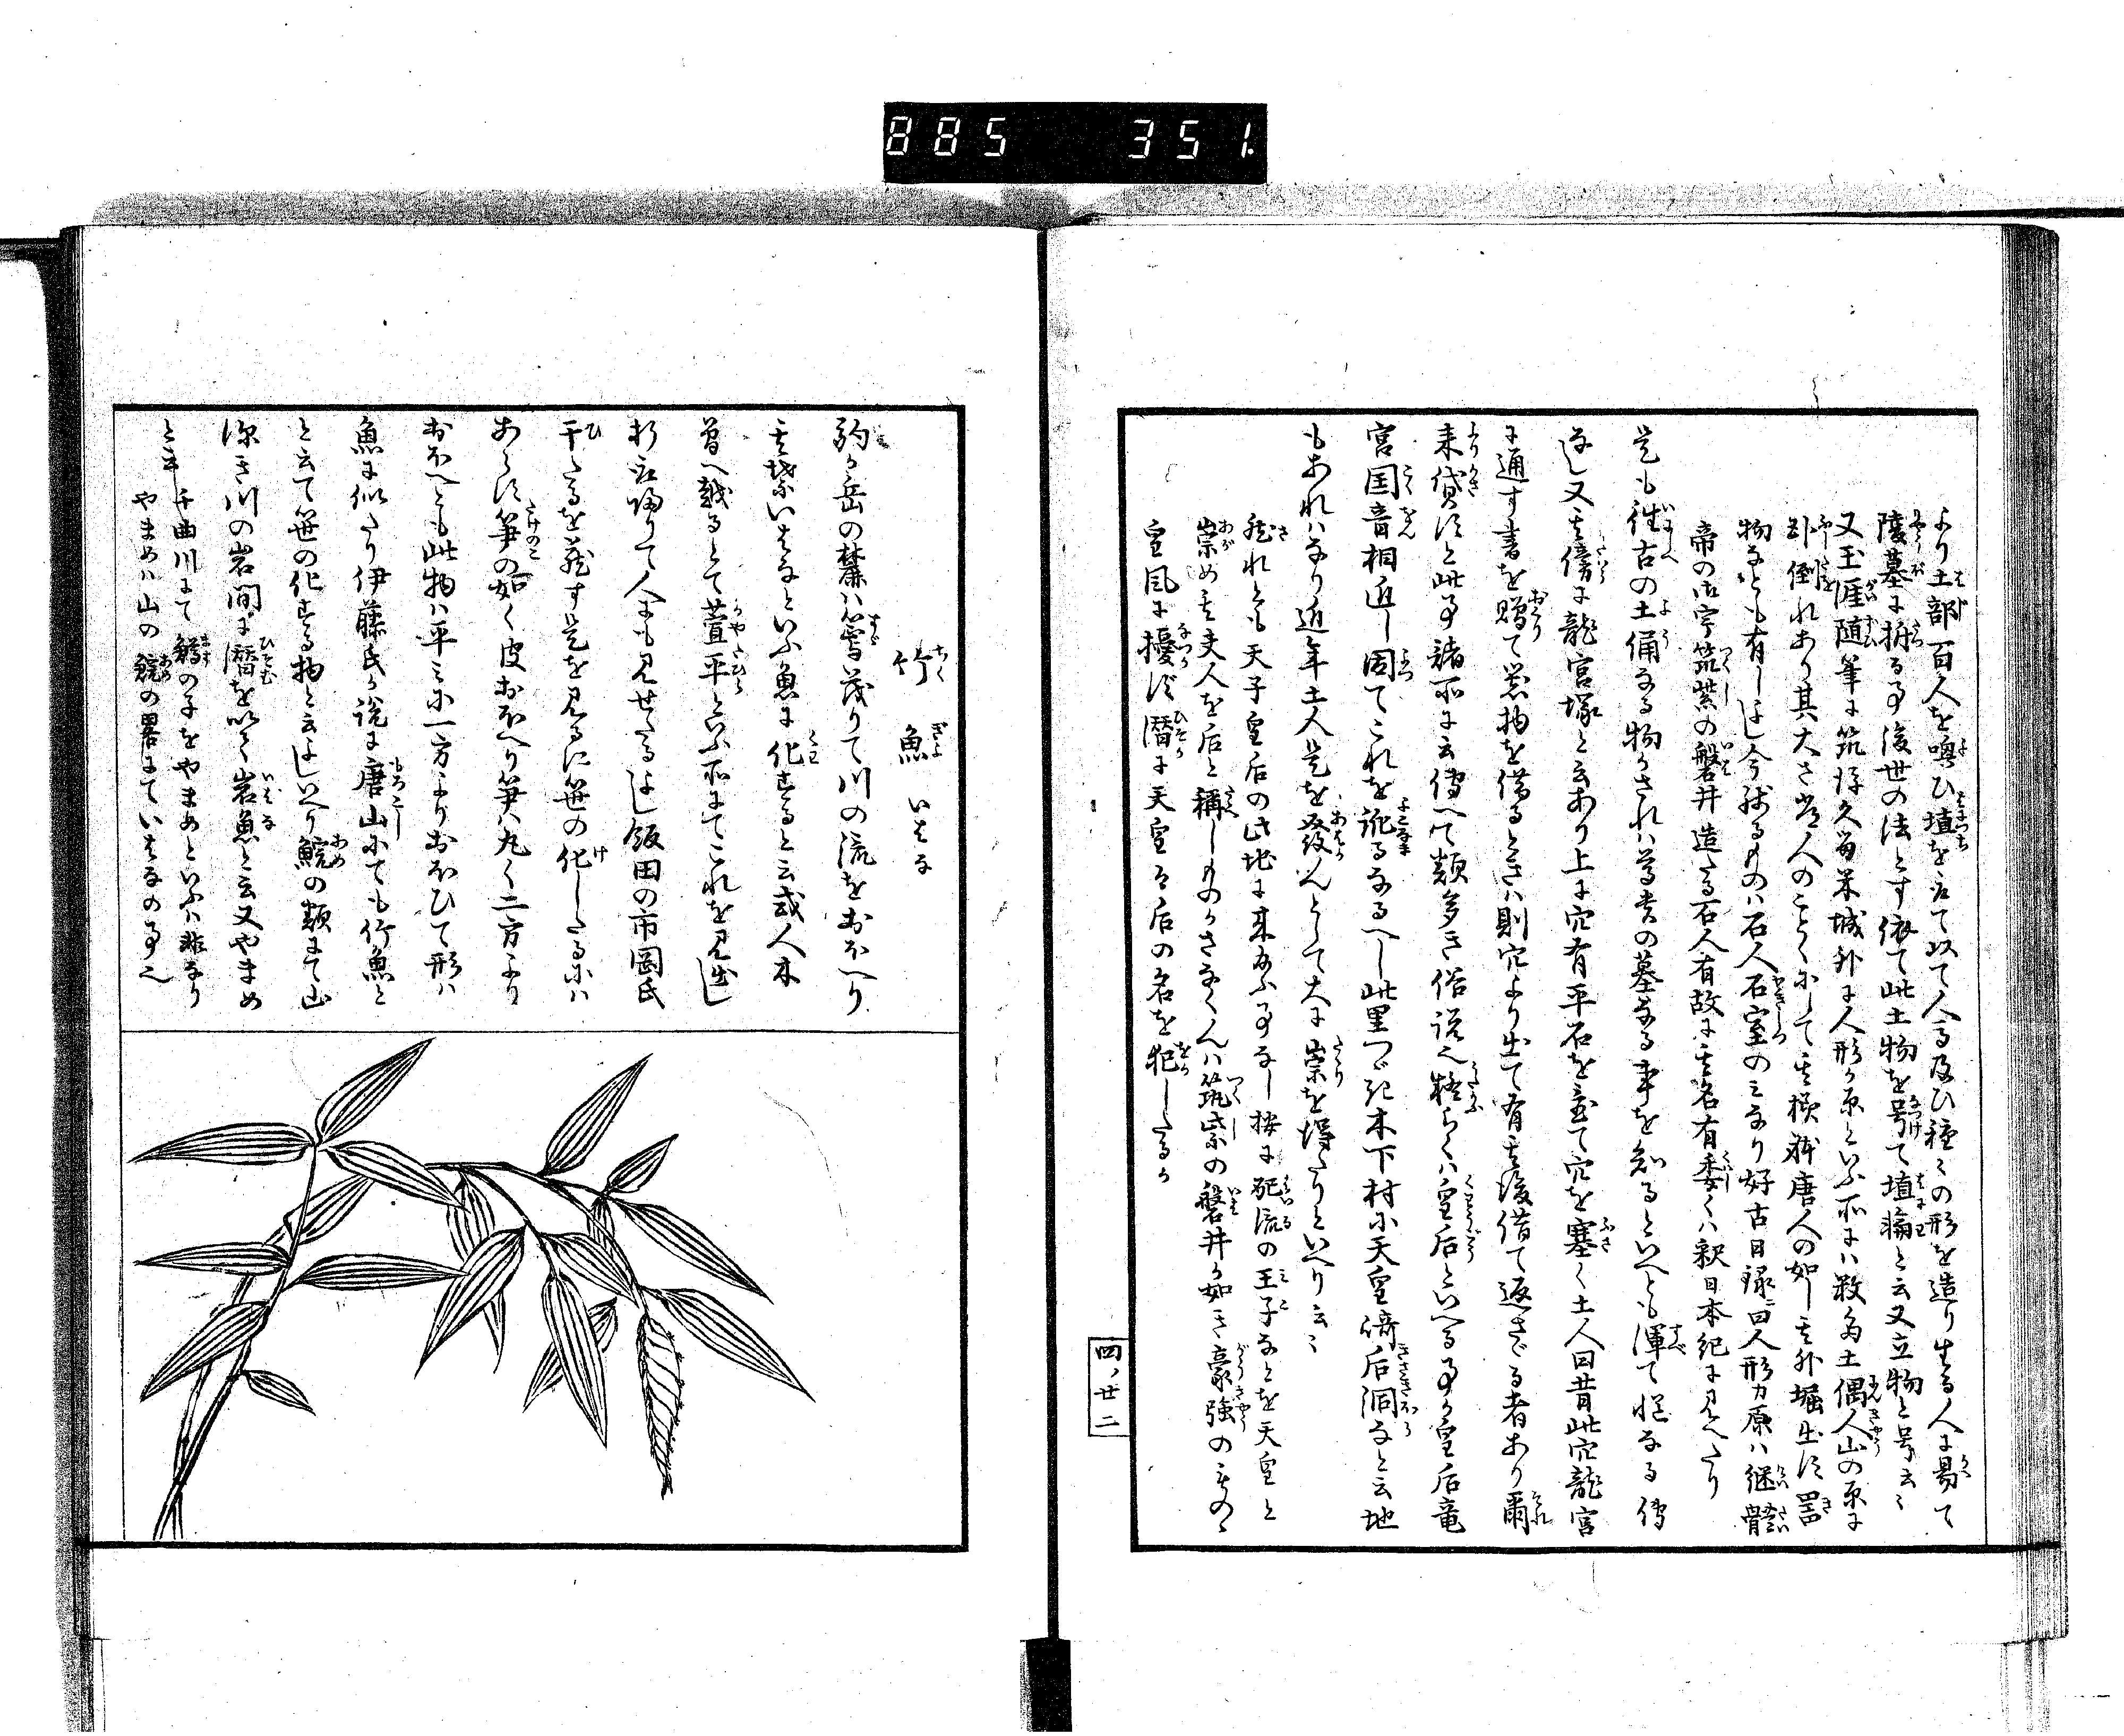 885 351
より土部百人を喚ひ埴を取て以て人馬及ひ種々の形を造り生る人に易て
陵墓に捔る事後世の法とす依て此土物を号て埴輪と云又立物と号云々
又玉涯随筆に筑後久留米城外に人形か原といふ所には数多土偶人山の原に
卧倒れあり其大さ常人のことくにして其模様唐人の如し其外堀出す器
物なとも有しよし今残るものは石人石室のみなり好古日録曰人形カ原は継體
帝の御宇筑紫の磐井造たる石人有故に其名有委くは釈日本紀に見へたり
是も往古の土俑なる物かされは尊貴の墓なる事を知るといへとも渾て慥なる傳
なし又其傍に龍宮塚と云あり上に穴有平石を置て穴を塞く土人曰昔此穴龍宮
に通す書を贈て器物を借るときは則穴より出て有其後借て返さゞる者あり爾
来貸すと此事諸所に云傳へて類多き俗説也軽らくは皇后といへる事か皇后竜
宮国音相近し因てこれを訛るなるへし此里つゞき木下村に天皇﨑后洞なと云地
もあれはなり近年土人是を發んとして大に崇を得たりといへり云々
然れとも天子皇后の此地に来給ふ事なし按に配流の王子なとを天皇と
崇め其夫人を后と稱しものかさなくんは筑紫の磐井か如き豪強のものゝ
皇風に擾ず潜に天皇皇后の名を犯したるか
四ノ廿二
竹魚 いはな
駒か岳の麓は篶茂りて川の流をおほへり
其葉いはなといふ魚に化するといふ或人木
曽へ越るとて萱平といふ所にてこれを見出し
折取帰りて人にも見せたるよし飯田の市岡氏
干たるを蔵す是を見るに笹の化したるには
あらす笋の如く皮おほへり笋は丸く二方より
おほへとも此物は平みに一方よりおほひて形は
魚に似たり伊藤氏か説に唐山にても竹魚と
と云て笹の化する物と云よしいへり鯇の類にて山
深き川の岩間に潜を以て岩魚と云又やまめ
とも千曲川にて鱒の子をやまめといふは非なり
やまめは山の鯇の畧にていはなの事也